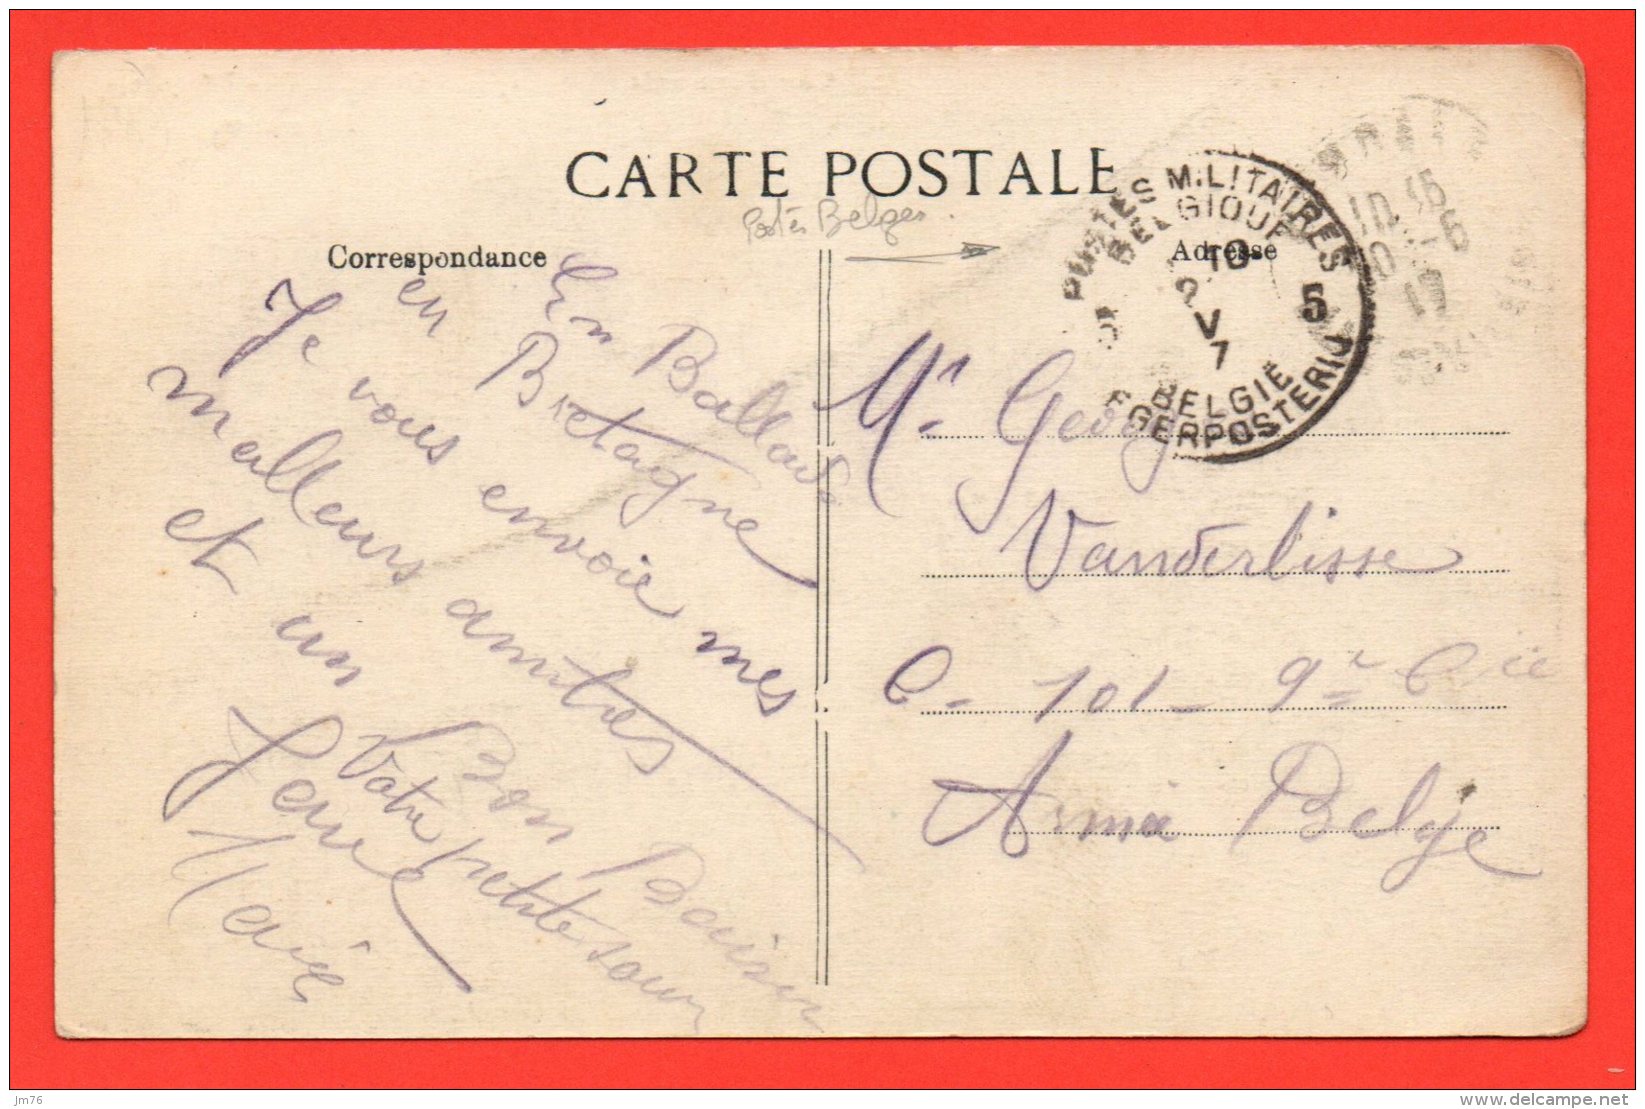 CARTE POSTALE
Postes Belges.
Correspondance
Adresse
POSTES MILITAIRES
BELGIQUE
10
V
7
5
BELGIE
LEGERPOSTERIJ
En Ballade
en Bretagne
Je vous envoie mes
meilleurs amitiés
et un Bon Baiser
Votre petite sœur
Jeune
Marie
Mr Georges
Vanderlisse
C. 101 - 9e Cie
Armée Belge
jm76
www.delcampe.net